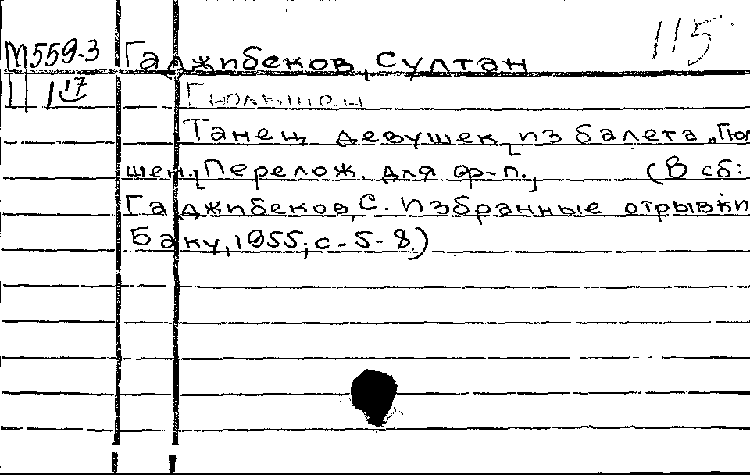 115
М559-3 Гаджибеков, Султан
II 1 17 Гюльшен
Танец девушек [из балета „Гюл
шен]. Перелож. для ф-п. (В сб:
Гаджибеков, С. Избранные отрывки
Баку, 1955, с. 5-8.)